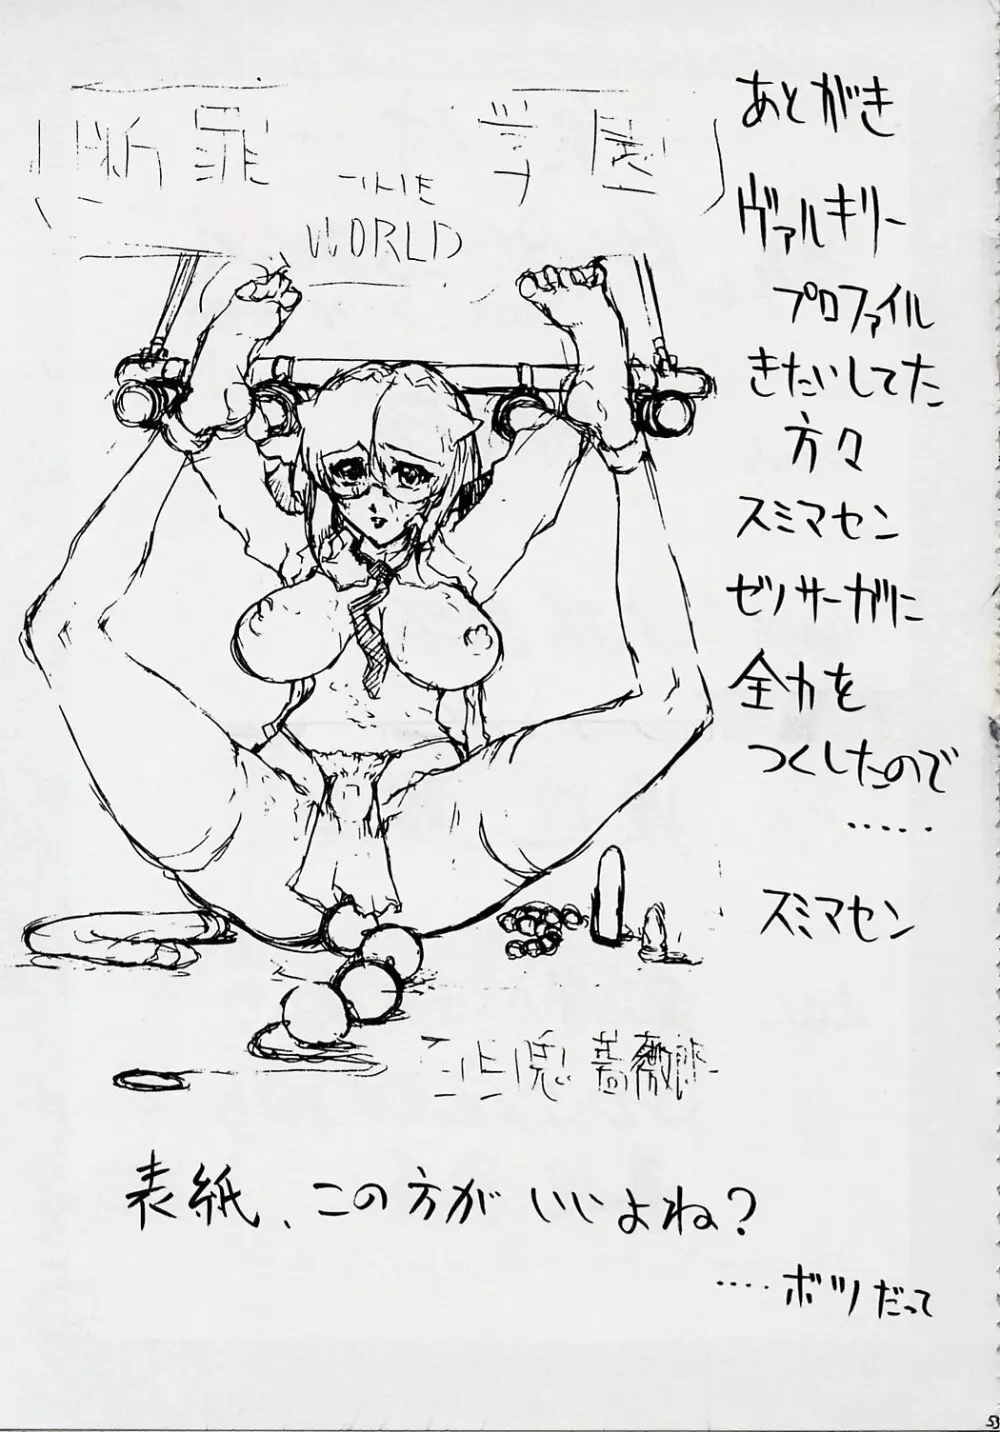 断罪 学園
THE
WORLD
あとがき
ヴァルキリー
プロファイル
きたいしてた
方々
スミマセン
ゼノサーガに
全力を
つくしたので
.....
スミマセン
薔薇
表紙、この方がいいよね?
....ボツだって
53